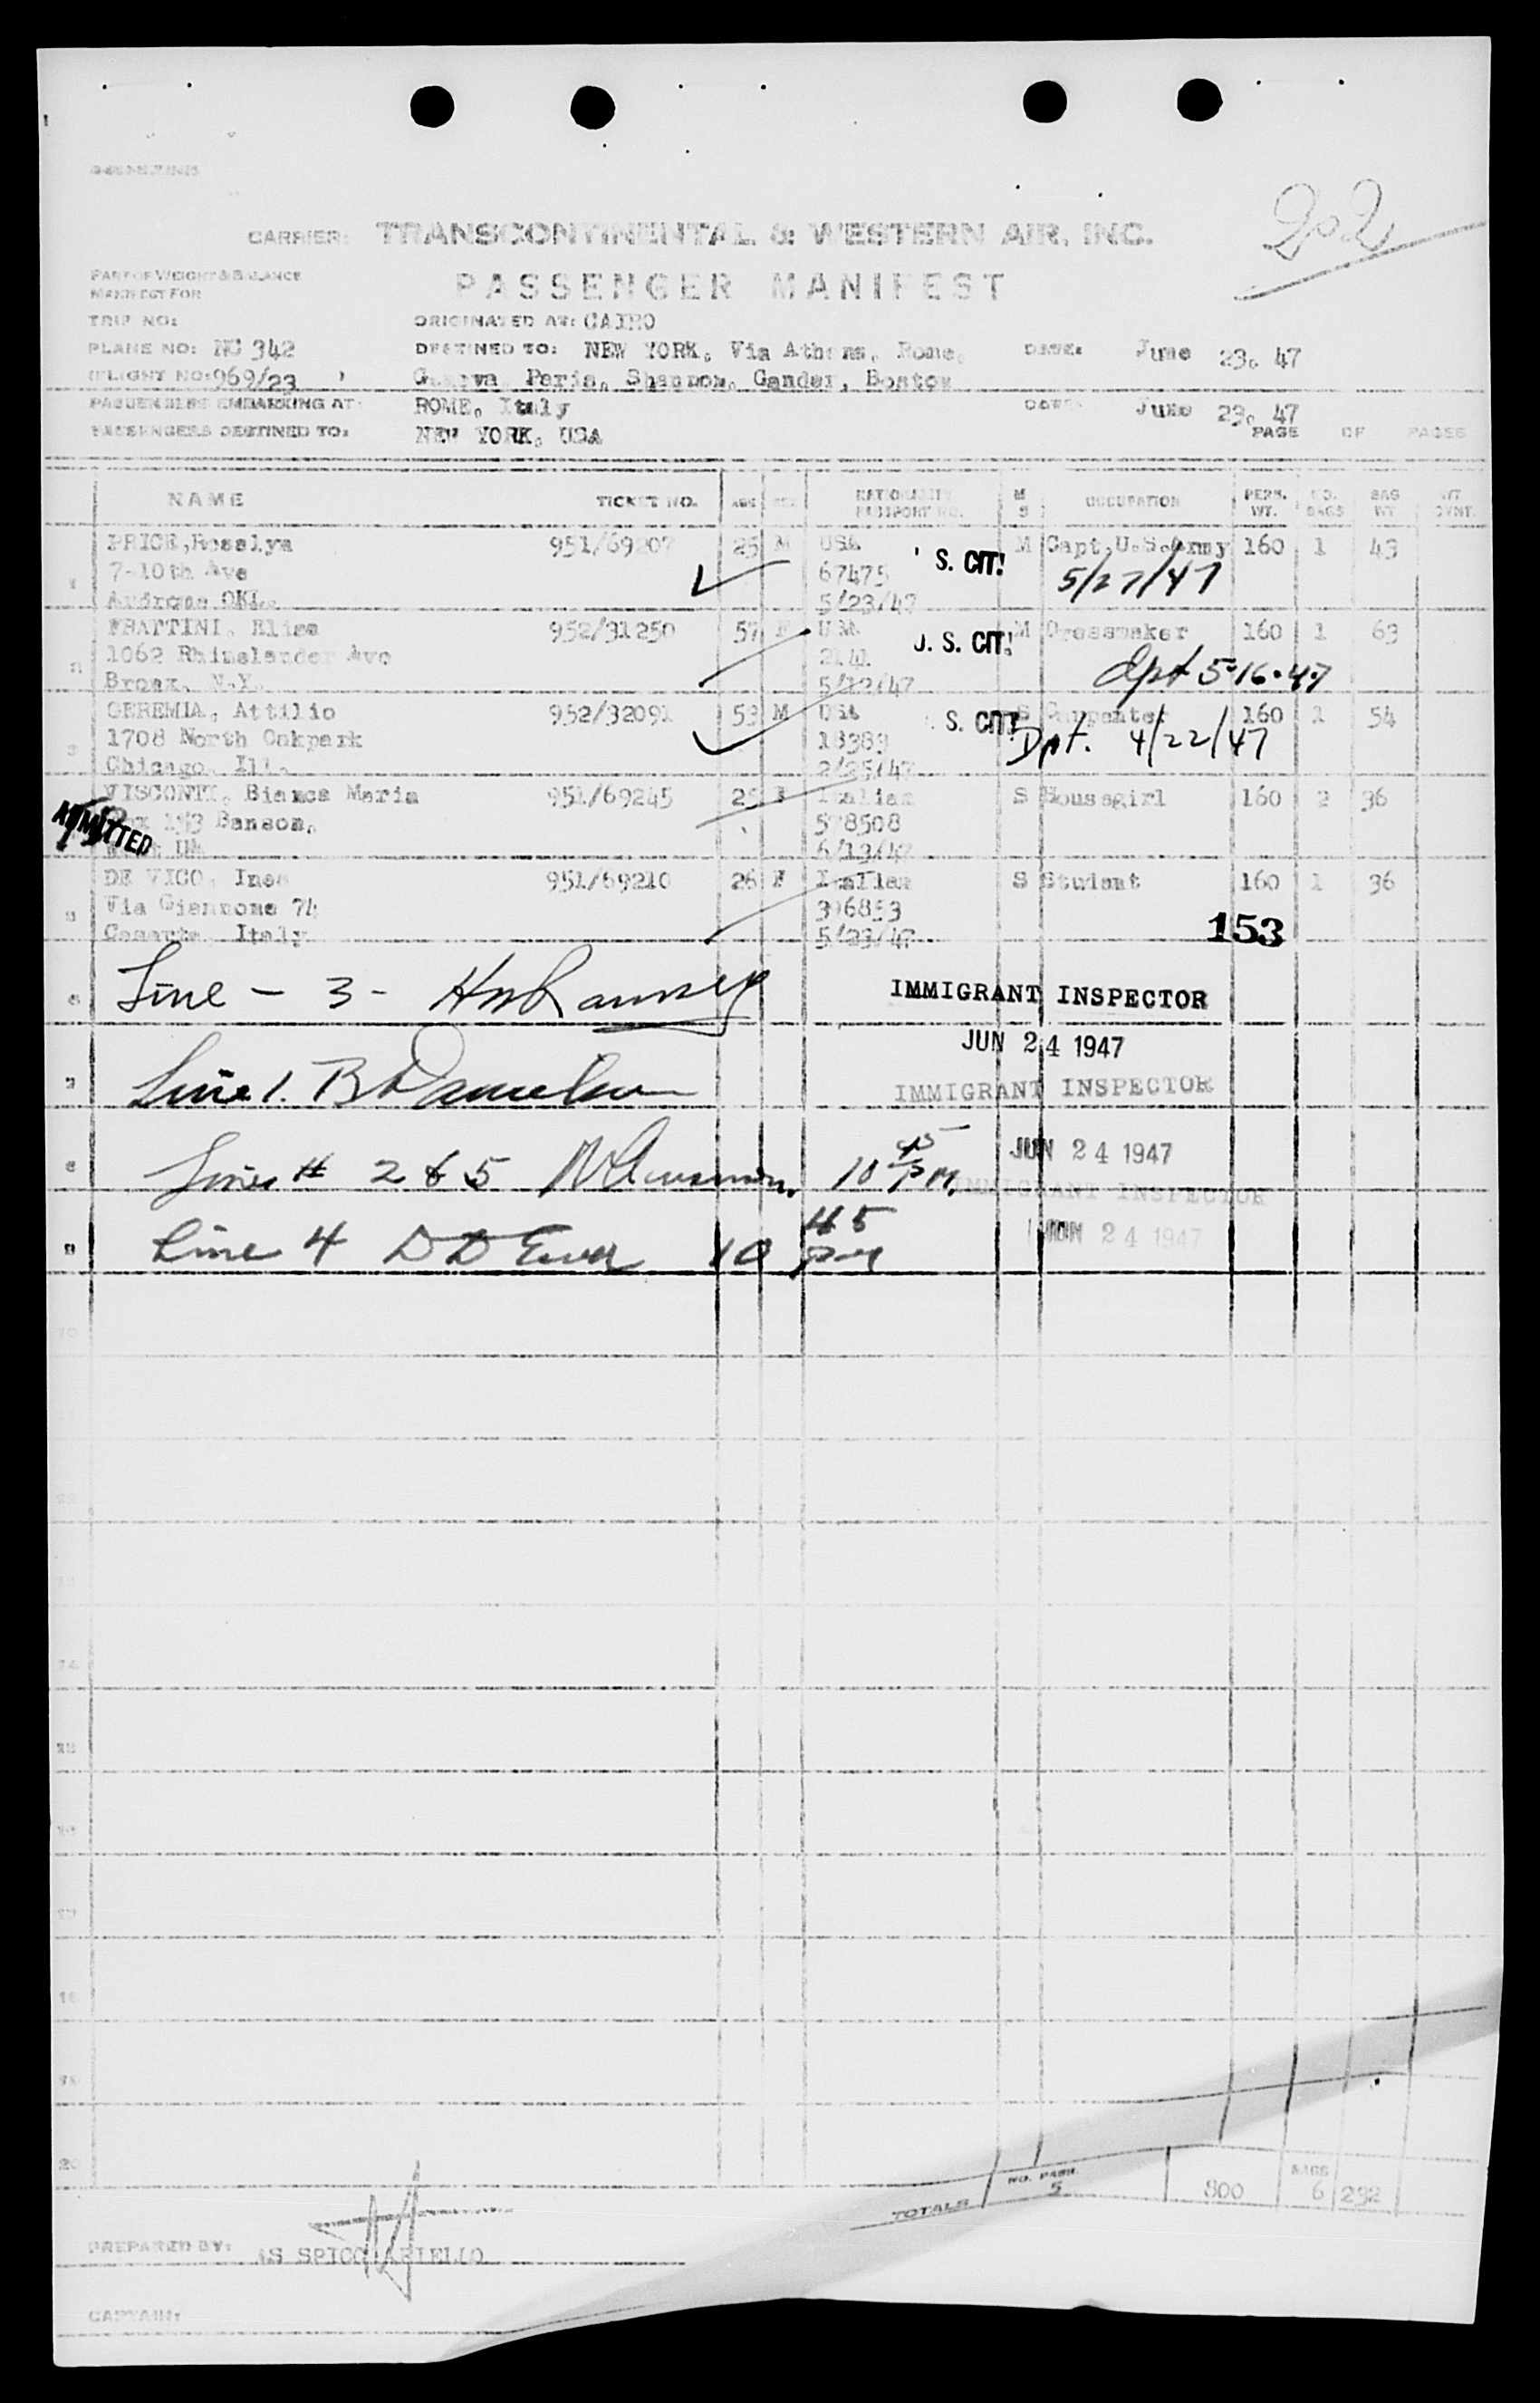 202
CARRIER: TRANSCONTINENTAL & WESTERN AIR, INC.
PART OF WEIGHT & BALANCE
MANIFEST FOR
PASSENGER MANIFEST
TRIP NO:
ORIGINATED AT: CAIRO
PLANE NO: NC 342
DESTINED TO: NEW YORK, Via Athens, Rome,
DATE: June 23, 47
FLIGHT NO: 969/23
Geneva Paris, Shannon, Gander, Boston
PASSENGERS EMBARKING AT:
ROME, Italy
DATE: June 23, 47
PASSENGERS DESTINED TO:
NEW YORK, USA
PAGE OF PAGES
NAME TICKET NO. AGE SEX NATIONALITY PASSPORT NO. M S OCCUPATION PERS. WT. NO. BAGS BAG WT
PRICE, Rosslya 951/69207 25 M USA S. CIT! M Capt, U.S. Army 160 1 43
7-10th Ave 67475 5/27/47
OKL. 5/23/47
FRATTINI, Elisa 952/31250 57 F USA U. S. CIT! M Dressmaker 160 1 63
1062 Rhinelander Ave 2141 dpt 5-16-47
Bronx, N.Y. 5/12/47
GEREMIA, Attilio 952/32091 53 M USA S. CIT! S Carpenter 160 1 54
1708 North Oakpark 18383 Dpt. 4/22/47
Chicago, Ill. 2/25/47
VISCONTI, Bianca Maria 951/69245 25 F Italian S Housegirl 160 2 36
ADMITTED
Box 153 Benson, 578508
6/13/47
DE VICO, Ines 951/69210 26 F Italian S Student 160 1 36
Via Giannone 74 396853
Caserta Italy 5/23/47
153
Line - 3 - HW Ramsey
IMMIGRANT INSPECTOR
JUN 24 1947
Line 1. B Danielson
IMMIGRANT INSPECTOR
JUN 24 1947
Lines # 2 & 5 10 45 PM
IMMIGRANT INSPECTOR
JUN 24 1947
Line 4 DD 10 45 pm
TOTALS NO. PASS. 5 800 BAGS 6 232
PREPARED BY: AS SPICCIARIELLO
CAPTAIN: